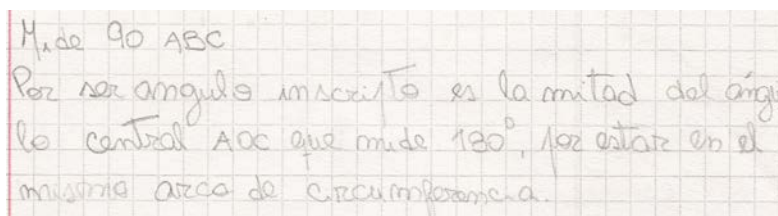 Mide 90 ABC
Por ser angulo inscripto es la mitad del ángu
lo central AOC que mide 180°, por estar en el
mismo arco de circumferencia.